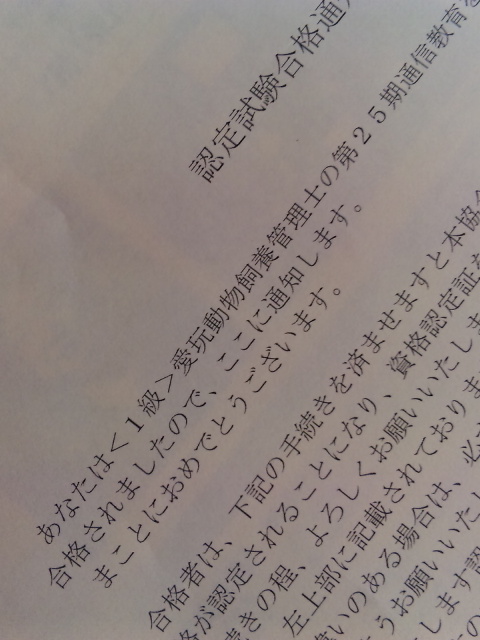 認定試験合格通
あなたは＜１級＞愛玩動物飼養管理士の第２５期通信教育を
合格されましたので、ここに通知します。
まことにおめでとうございます。
合格者は、下記の手続きを済ませますと本協会
格が認定されることになり、資格認定証を
続きの程、よろしくお願いいたしま
左上部に記載されておりま
違いのある場合は、必
うお願いいたし
します認
の